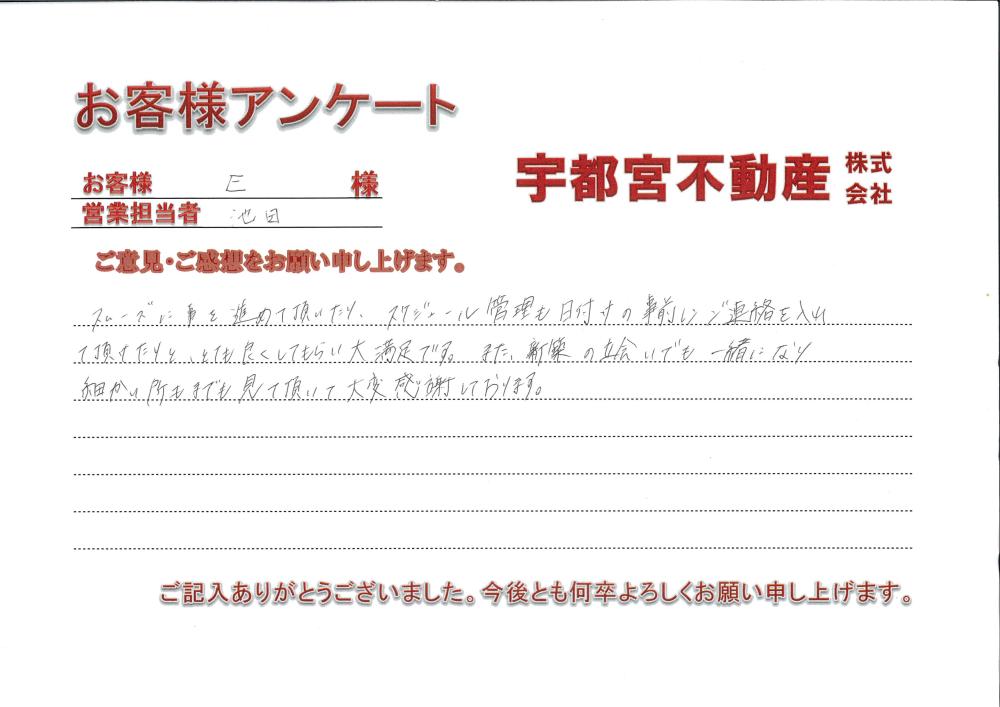 お客様アンケート
お客様 E 様
宇都宮不動産 株式会社
営業担当者 池田
ご意見・ご感想をお願い申し上げます。
スムーズに事を進めて頂いたり、スケジュール管理も日付けの事前にご連絡を入れ
て頂けたりと、とても良くしてもらい大満足です。また、新築の立会いでも一緒になり
細かい所もまでも見て頂いて大変感謝しております。
ご記入ありがとうございました。今後とも何卒よろしくお願い申し上げます。